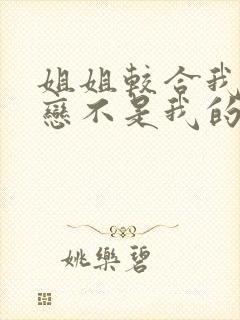 姐姐較合我
戀不是我的
姚樂碧